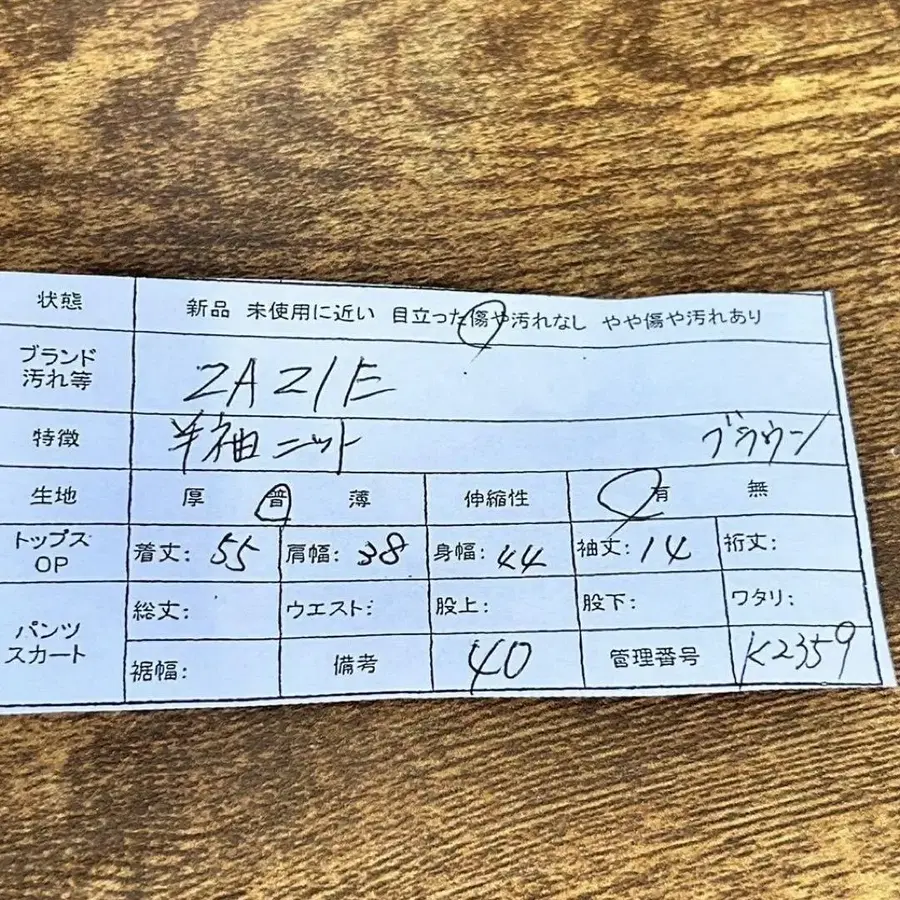 状態 新品 未使用に近い 目立った傷や汚れなし やや傷や汚れあり
ブランド
汚れ等 ZAZIE
特徴 半袖ニット ブラウン
生地 厚 普 薄 伸縮性 有 無
トップス
OP 着丈: 55 肩幅: 38 身幅: 44 袖丈: 14 裄丈:
パンツ
スカート 総丈: ウエスト: 股上: 股下: ワタリ:
裾幅: 備考 40 管理番号 K2359